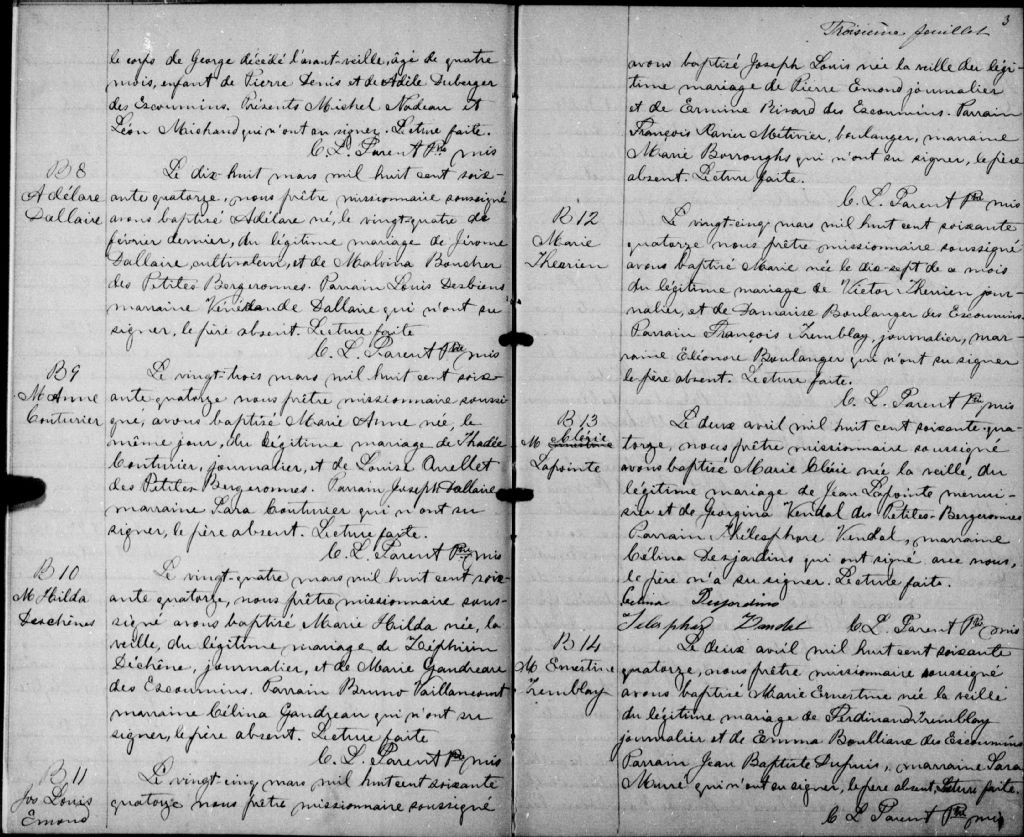 le corps de George décédé l'avant-veille, âgé de quatre
mois, enfant de Pierre Denis et de Adèle Duberger
des Escoumins. Présents Michel Nadeau et
Léon Michaud qui n'ont su signer. Lecture faite.
C. L. Parent Ptre mis
B 8
Adélare
Dallaire
Le dix-huit mars mil huit cent soix-
ante quatorze, nous prêtre missionnaire soussigné
avons baptisé Adélare né, le vingt-quatre de
février dernier, du légitime mariage de Jérome
Dallaire, cultivateur, et de Malvina Boucher
des Petites Bergeronnes. Parrain Louis Desbiens
marraine Vénérande Dallaire qui n'ont su
signer, le père absent. Lecture faite
C. L. Parent Ptre mis
B 9
M Anne
Couturier
Le vingt-trois mars mil huit cent soix-
ante quatorze nous prêtre missionnaire soussi-
gné, avons baptisé Marie Anne née, le
même jour, du légitime mariage de Thadée
Couturier, journalier, et de Louise Ouellet
des Petites Bergeronnes. Parrain Joseph Dallaire
marraine Sara Couturier qui n'ont su
signer, le père absent. Lecture faite.
C. L. Parent Ptre mis
B 10
M Hilda
Deschênes
Le vingt-quatre mars mil huit cent soix-
ante quatorze, nous prêtre missionnaire sous-
signé avons baptisé Marie Hilda née, la
veille, du légitime mariage de Zéphirin
Déchêne, journalier, et de Marie Gaudreau
des Escoumins. Parrain Bruno Vaillancourt
marraine Célina Gaudreau qui n'ont su
signer, le père absent. Lecture faite
C. L. Parent Ptre mis
B 11
Jos Louis
Émond
Le vingt-cinq mars mil huit cent soixante
quatorze nous prêtre missionnaire soussigné
3
Troisième feuillet
avons baptisé Joseph Louis née la veille du légi-
time mariage de Pierre Emond journalier
et de Ermine Rivard des Escoumins. Parrain
François Xavier Métivier, boulanger, marraine
Marie Borroughs qui n'ont su signer, le père
absent. Lecture faite.
C. L. Parent Ptre mis
B 12
Marie
Therrien
Le vingt-cinq mars mil huit cent soixante
quatorze nous prêtre missionnaire soussigné
avons baptisé Marie née le dix-sept de ce mois
du légitime mariage de Victor Therrien jour-
nalier, et de Damaise Boulanger des Escoumins.
Parrain François Tremblay, journalier, mar-
raine Éléonore Boulanger qui n'ont su signer
le père absent. Lecture faite.
C. L. Parent Ptre mis
B 13
M Clézie
Lapointe
Le deux avril mil huit cent soixante-qua-
torze, nous prêtre missionnaire soussigné
avons baptisé Marie Clézie née la veille, du
légitime mariage de Jean Lapointe menui-
sier et de Georgina Vendal des Petites-Bergeronnes
Parrain Thélesphore Vendal, marraine
Célina Desjardins qui ont signé avec nous,
le père n'a su signer. Lecture faite.
Celina Desjardins
Telesphor Vandal C. L. Parent Ptre mis
B 14
M Ernestine
Tremblay
Le deux avril mil huit cent soixante
quatorze, nous prêtre missionnaire soussigné
avons baptisé Marie Ernestine née la veille
du légitime mariage de Ferdinand Tremblay
journalier et de Emma Boulliane des Escoumins
Parrain Jean Baptiste Dupuis, marraine Sara
qui n'ont su signer, le père absent, Lecture faite.
C. L. Parent Ptre mis